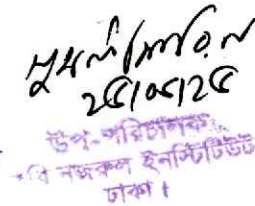 ২৫/০৫/২৫
উপ-পরিচালক
বি নজরুল ইনস্টিটিউট
ঢাকা।